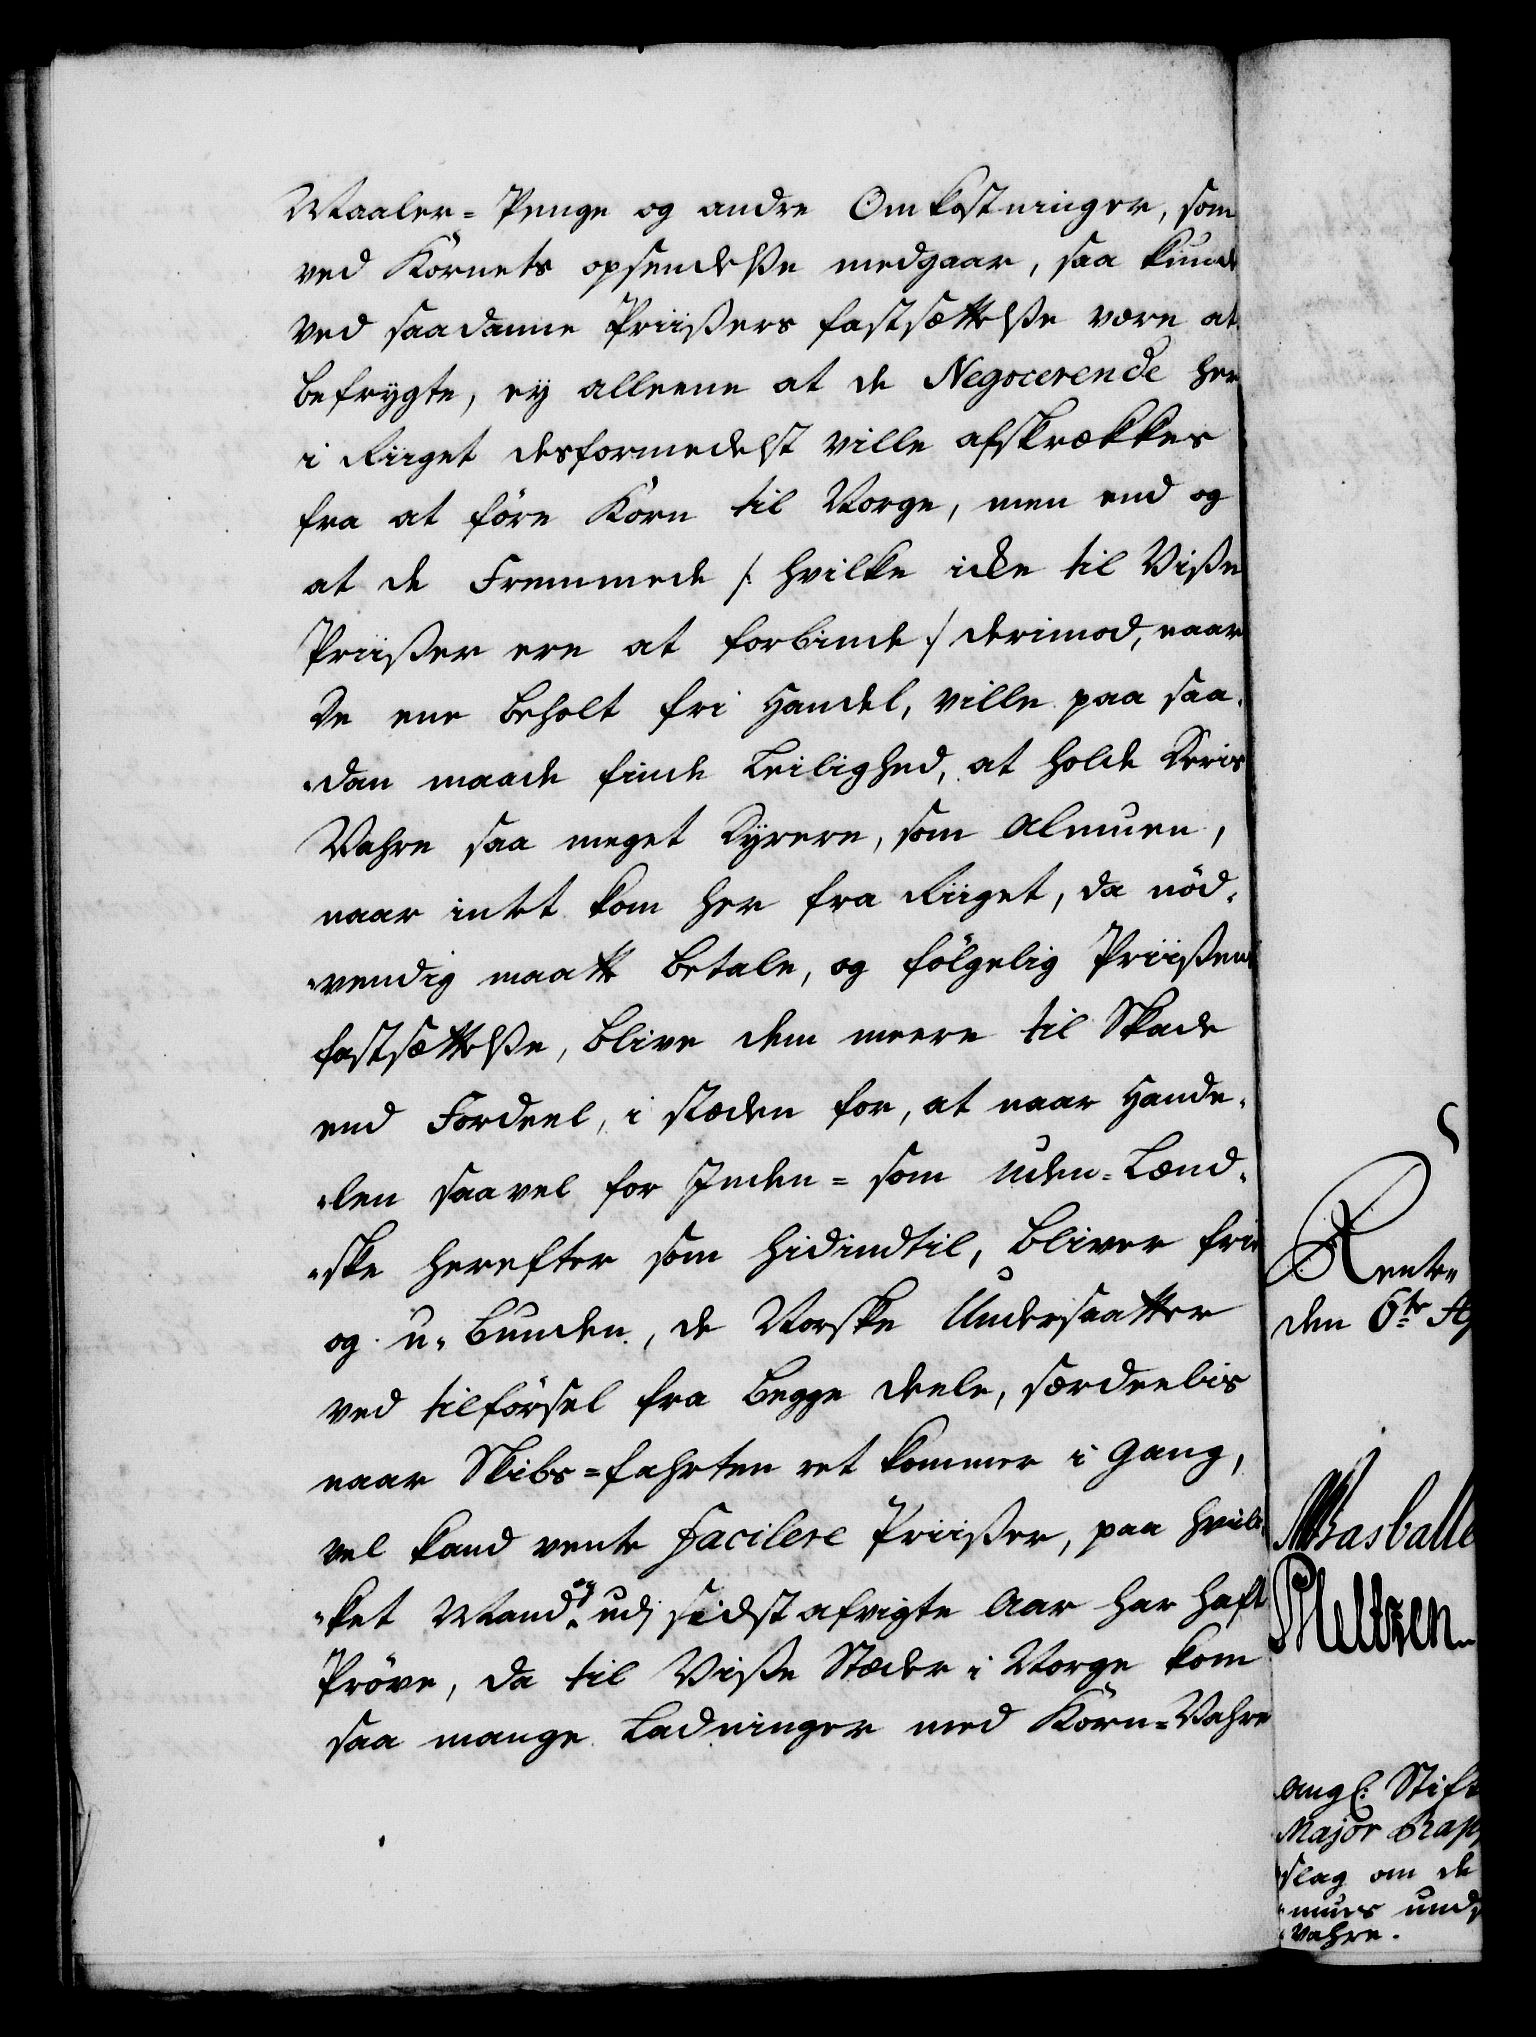 Maaler-Penge og andre Omkostninger, som
ved Kornets opsendelße medgaar, saa kunde
ved saadanne Priißers fastsættelße være at
befrygte, ey alleene at de Negocerende her
i Riiget desformedelst ville afskrækkes
fra at före Korn til Norge, men end og
at de Fremmede /: hvilke icke til Viße
Priißer ere at forbinde :/ derimod, naar
De ene beholt fri Handel, ville paa saa-
-dan maade finde Leilighed, at holde Deris
Vahre saa meget Dyrere, som Almuen,
naar intet kom her fra Riiget, da nöd-
-vendig maatte betale, og fölgelig Priißens
fastsættelße, blive dem meere til Skade
end Fordeel, i stæden for, at naar Hande-
-len saavel for Inden- som uden-Lænd-
-ske herefter som hidindtil, bliver frie
og u-bunden, de Norske Undersaatter
ved tilförsel fra begge deele, særdeelis
naar Skibs-farten ret kommer i Gang,
vel kand vente facilere Priißer, paa hvil-
-ket Mand og udj sidst afvigte Aar har haft
Pröve, da til Viße Stæder i Norge kom
saa mange Ladninger med Korn-Vahre
Rente-
den 6te Ap
Basballe
Meltzen
angl: Stift
Major Rapp
slag om de
-nues und
Vahre.